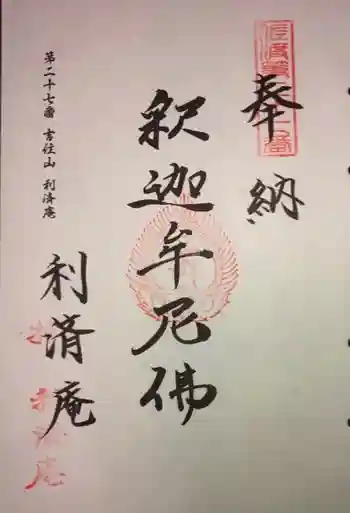 奉納
釈迦牟尼佛
第二十七番 吉住山 利済庵
利済庵